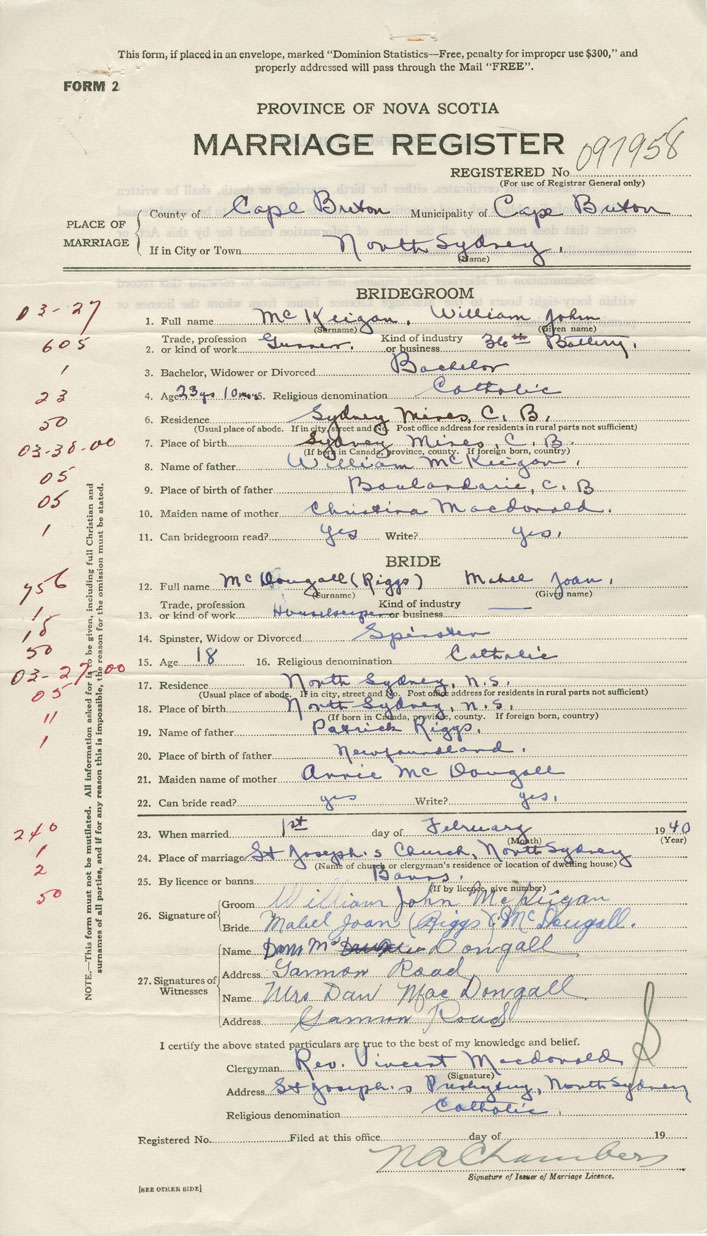 This form, if placed in an envelope, marked "Dominion Statistics—Free, penalty for improper use $300," and
properly addressed will pass through the Mail "FREE".
FORM 2
PROVINCE OF NOVA SCOTIA
MARRIAGE REGISTER
REGISTERED No. 097958
(For use of Registrar General only)
PLACE OF MARRIAGE
County of Cape Breton Municipality of Cape Breton
If in City or Town North Sydney.
(Name)
BRIDEGROOM
03-27
1. Full name McKeigan, William John
(Surname) (Given name)
605
2. Trade, profession or kind of work Gunner. Kind of industry or business 36th Battery.
1
3. Bachelor, Widower or Divorced Bachelor
23
4. Age 23 yrs 10 mos 5. Religious denomination Catholic
50
6. Residence Sydney Mines, C. B.
(Usual place of abode. If in city, street and No. Post office address for residents in rural parts not sufficient)
03-38-00
7. Place of birth Sydney Mines, C. B.
(If born in Canada, province, county. If foreign born, country)
8. Name of father William McKeigan.
05
9. Place of birth of father Boulardarie, C. B
05
10. Maiden name of mother Christina Macdonald.
1
11. Can bridegroom read? yes Write? yes.
BRIDE
756
12. Full name McDougall (Riggs) Mabel Joan.
(Surname) (Given name)
1
13. Trade, profession or kind of work Housekeeper Kind of industry or business —
18
14. Spinster, Widow or Divorced Spinster
50
15. Age 18 16. Religious denomination Catholic
03-27-00
17. Residence North Sydney, N.S.
(Usual place of abode. If in city, street and No. Post office address for residents in rural parts not sufficient)
05
18. Place of birth North Sydney, N.S.
(If born in Canada, province, county. If foreign born, country)
11
19. Name of father Patrick Riggs.
1
20. Place of birth of father Newfoundland.
21. Maiden name of mother Annie McDougall
22. Can bride read? yes Write? yes.
240
23. When married 1st day of February 1940
(Month) (Year)
1
24. Place of marriage St Joseph's Church, North Sydney
(Name of church or clergyman's residence or location of dwelling house)
2
25. By licence or banns Banns.
(If by licence, give number)
50
26. Signature of
Groom William John McKeigan
Bride Mabel Joan (Riggs) McDougall.
27. Signatures of Witnesses
Name Dan Mc Dougall
Address Gannon Road
Name Mrs Dan MacDougall
Address Gannon Road
I certify the above stated particulars are true to the best of my knowledge and belief.
Clergyman Rev. Vincent Macdonald
(Signature)
Address St Joseph's Presbytery, North Sydney
Religious denomination Catholic.
Registered No. Filed at this office day of 19
N A Chambers
Signature of Issuer of Marriage Licence.
[SEE OTHER SIDE]
NOTE.—This form must not be mutilated. All information asked for is to be given, including full Christian and
surnames of all parties, and if for any reason this is impossible, the reason for the omission must be stated.